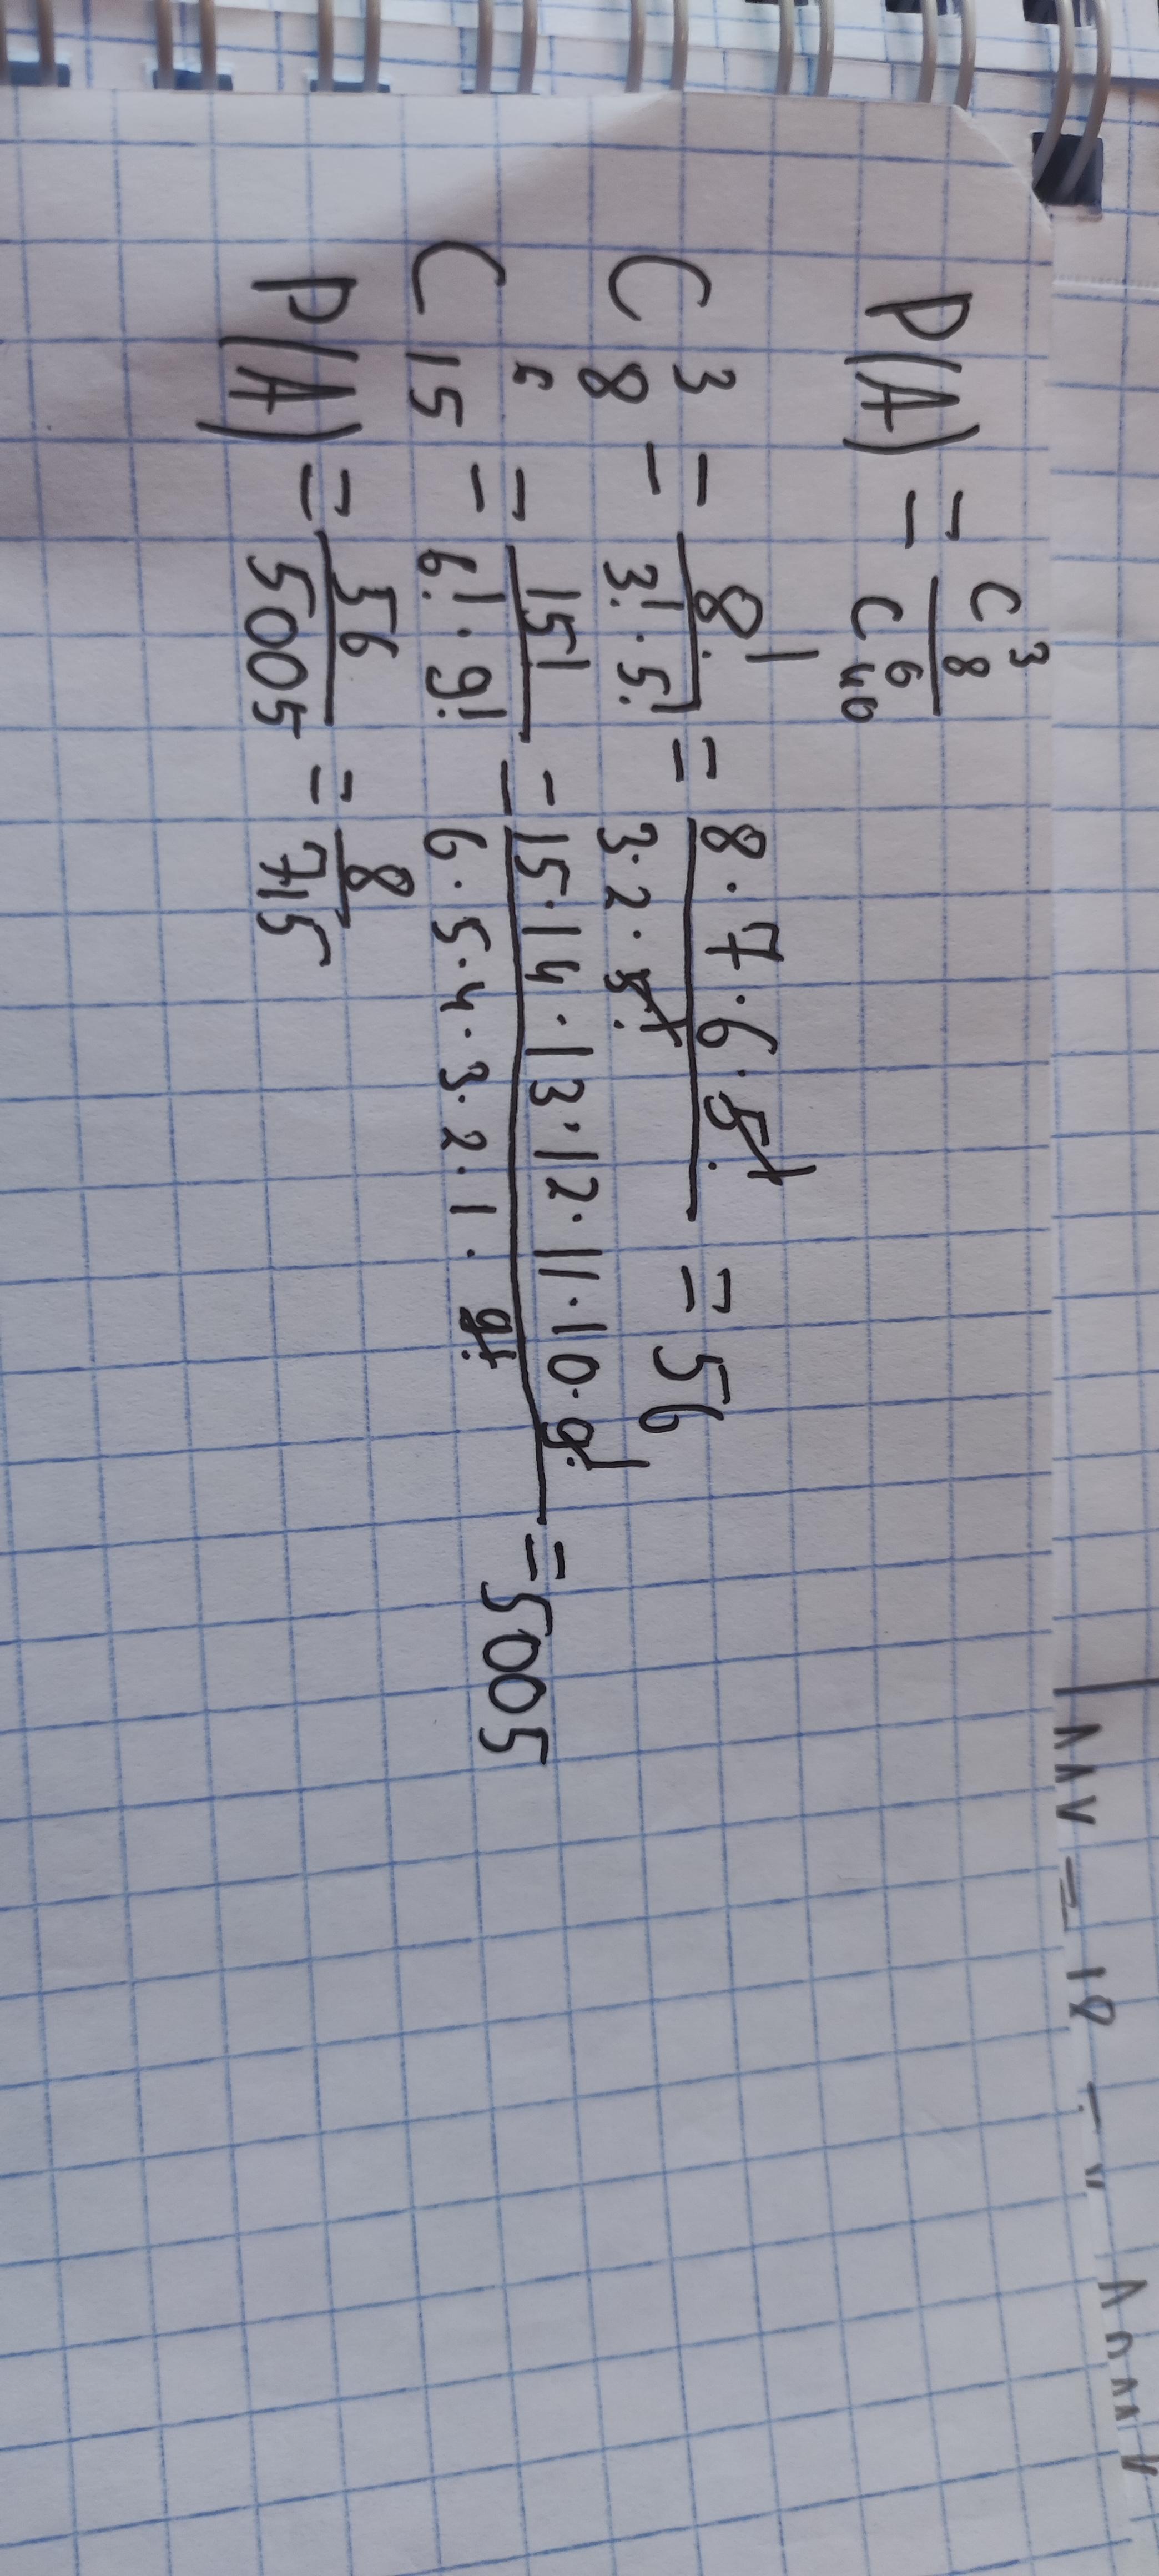 P(A) = C³₈ / C⁶₄₀
C³₈ = 8! / 3!·5! = 8·7·6·5! / 3·2·5! = 56
C⁶₁₅ = 15! / 6!·9! = 15·14·13·12·11·10·9! / 6·5·4·3·2·1·9! = 5005
P(A) = 56 / 5005 = 8 / 715